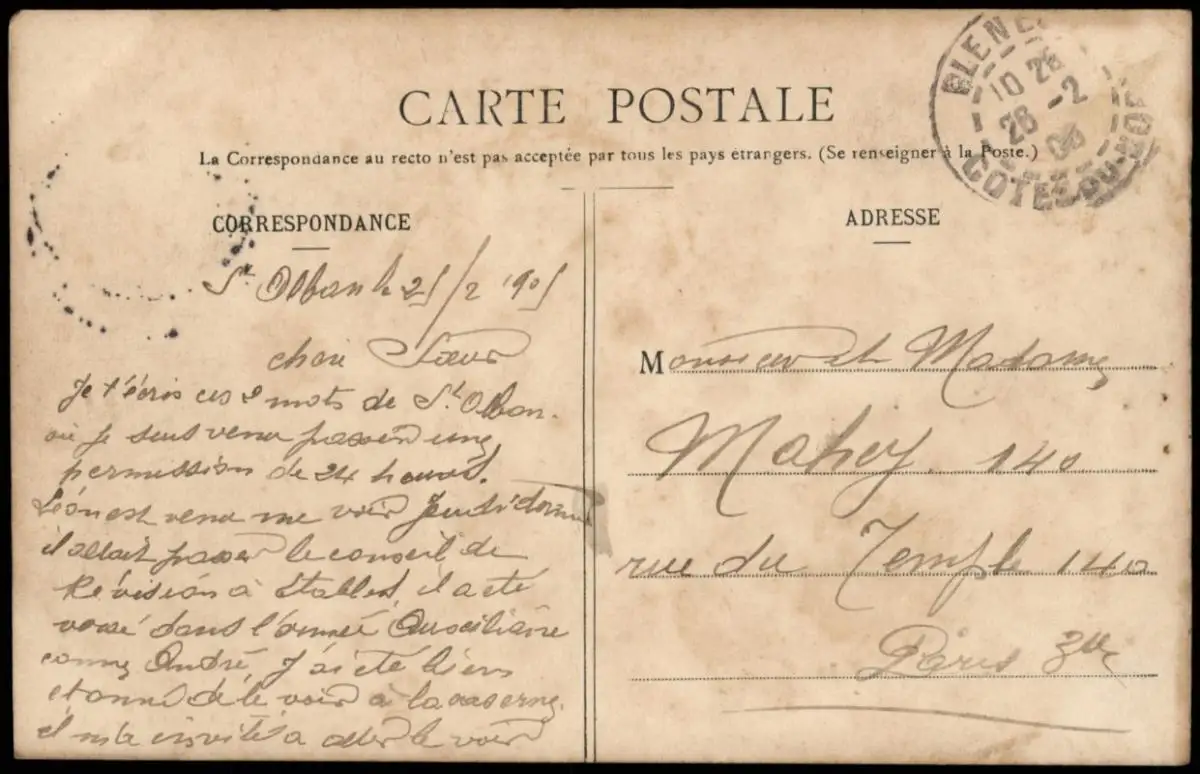 CARTE POSTALE
La Correspondance au recto n'est pas acceptée par tous les pays étrangers. (Se renseigner à la Poste.)
BLENE
10 26
26 -2
COTES-DU-NOR
CORRESPONDANCE
St Alban le 25/2 1905
chaire Sœur
Je t'écris ces 2 mots de St Alban.
où je suis venu passer une
permission de 24 heures.
Léon est venu me voir Jeudi
il allait passer le conseil de
Révision à Etables, il a été
dans l'armée Auxciliaire
comme André, J'ai été bien
etonné de le voir à la caserne.
il m'a invité a aller le voir
ADRESSE
Monsieur et Madame
Mahey. 140
rue du Temple 140
Paris 3me